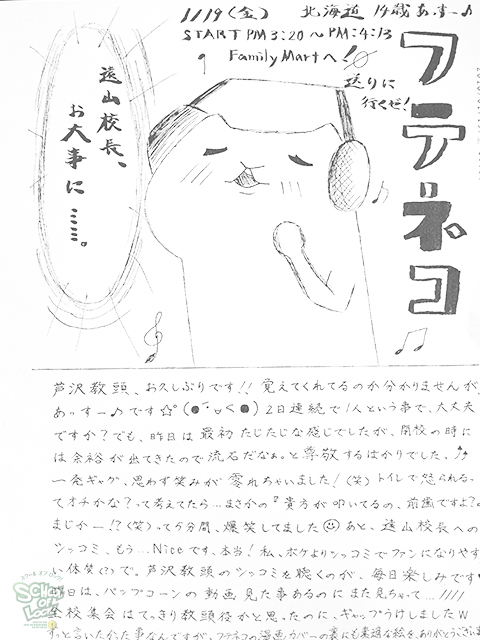 11/19(金) 北海道 14歳 あすー♪
START PM 3:20 〜 PM:4:13
Family Martへ!
送りに
行くぜ!
フテネコ
遠山校長、
お大事に……。
芦沢教頭、お久しぶりです!! 覚えてくれてるのか分かりませんが、
あッすー♪です☆ 2日連続で1人という事で、大丈夫
ですか?でも、昨日は最初たじたじな感じでしたが、閉校の時に
は余裕が出てきたので流石だなぁ。と尊敬するばかりでした。
一発ギャグ、思わず笑みが零れちゃいました!(笑)トイレで怒られるっ
てオチかな?って考えてたら…まさかの『貴方が叩いてるの、前歯ですよ?』
まじかー!?(笑)って5分間、爆笑してました あと、遠山校長への
ツッコミ、もう…Niceです、本当!私、ボケよりツッコミでファンになりやす
い体質(?)で。芦沢教頭のツッコミを聴くのが、毎日楽しみです
昨日は、パップコーンの動画見た事あるのにまた見ちゃって…////
全校集会はてっきり教頭役かと思ったのに、ギャップうけしましたw
ずっと言いたかった事なんですが、フテネコの漫画カバーの裏にも素適な絵をありがとうございま
SCHOOL OF LOCK!